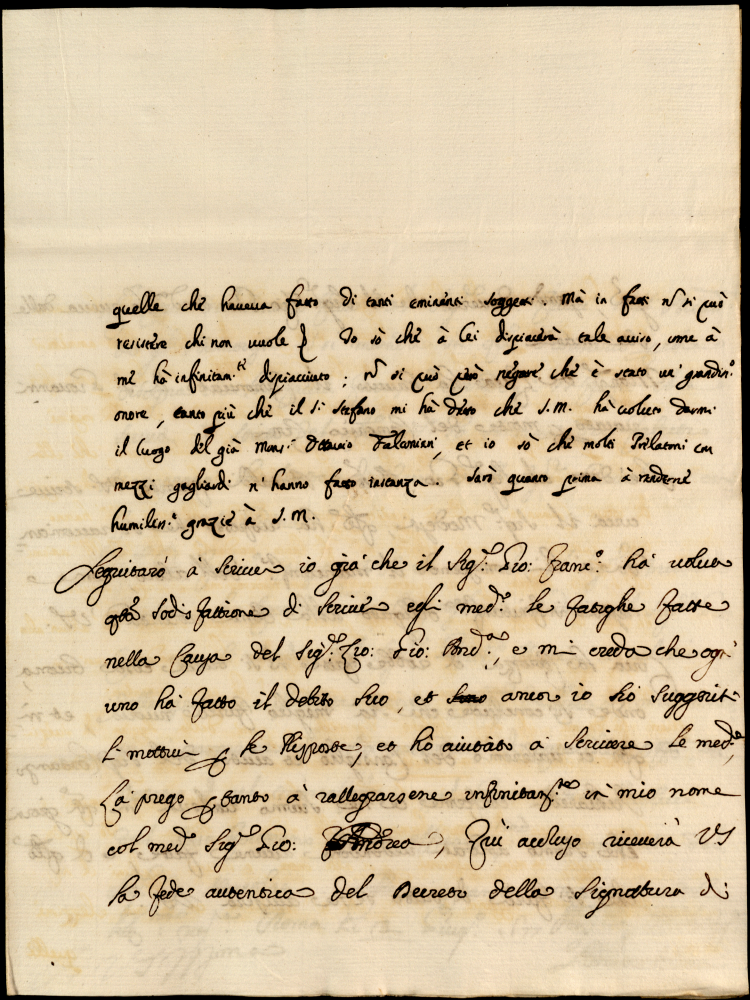 quelle che haueua fatto di tanti eminenti soggetti. Mà in fatti nõ si può
resistere chi non vuole Io sò che à lei dispiacerà tale auiso, come à
me hà infinitam.te dispiacciuto; nõ si può però negare che è stato un' grandiss.o
onore, tanto più che il S.r Stefano mi hà detto che S.M. hà voluto darmi
il luogo del già Mons.r Ottauio Falconieri, et io sò che molti Prelatoni con
mezzi gagliardi n' hanno fatto instanza. Sarò quanto prima à renderne
humiliss.e grazie à S.M.
Seguitarò à Scriuer io già che il Sig.r Gio: Franc.o hà voluta
q.ta Sodisfattione di Scriuer egli med.o le fatighe fatte
nella Causa del Sig.r Zio: Gio: And.a, e mi creda che ogn'
uno hà fatto il debito Suo, et ancor io hò Suggeriti
le Risposte, et hò aiutato à Scriuere le med.e,
La prego tanto à rallegrarsene infinitam.te in mio nome
col med.o Sig.r Gio: Andrea, Quì accluso riceuerà VS
la fede autentica del Decreto della Signatura di